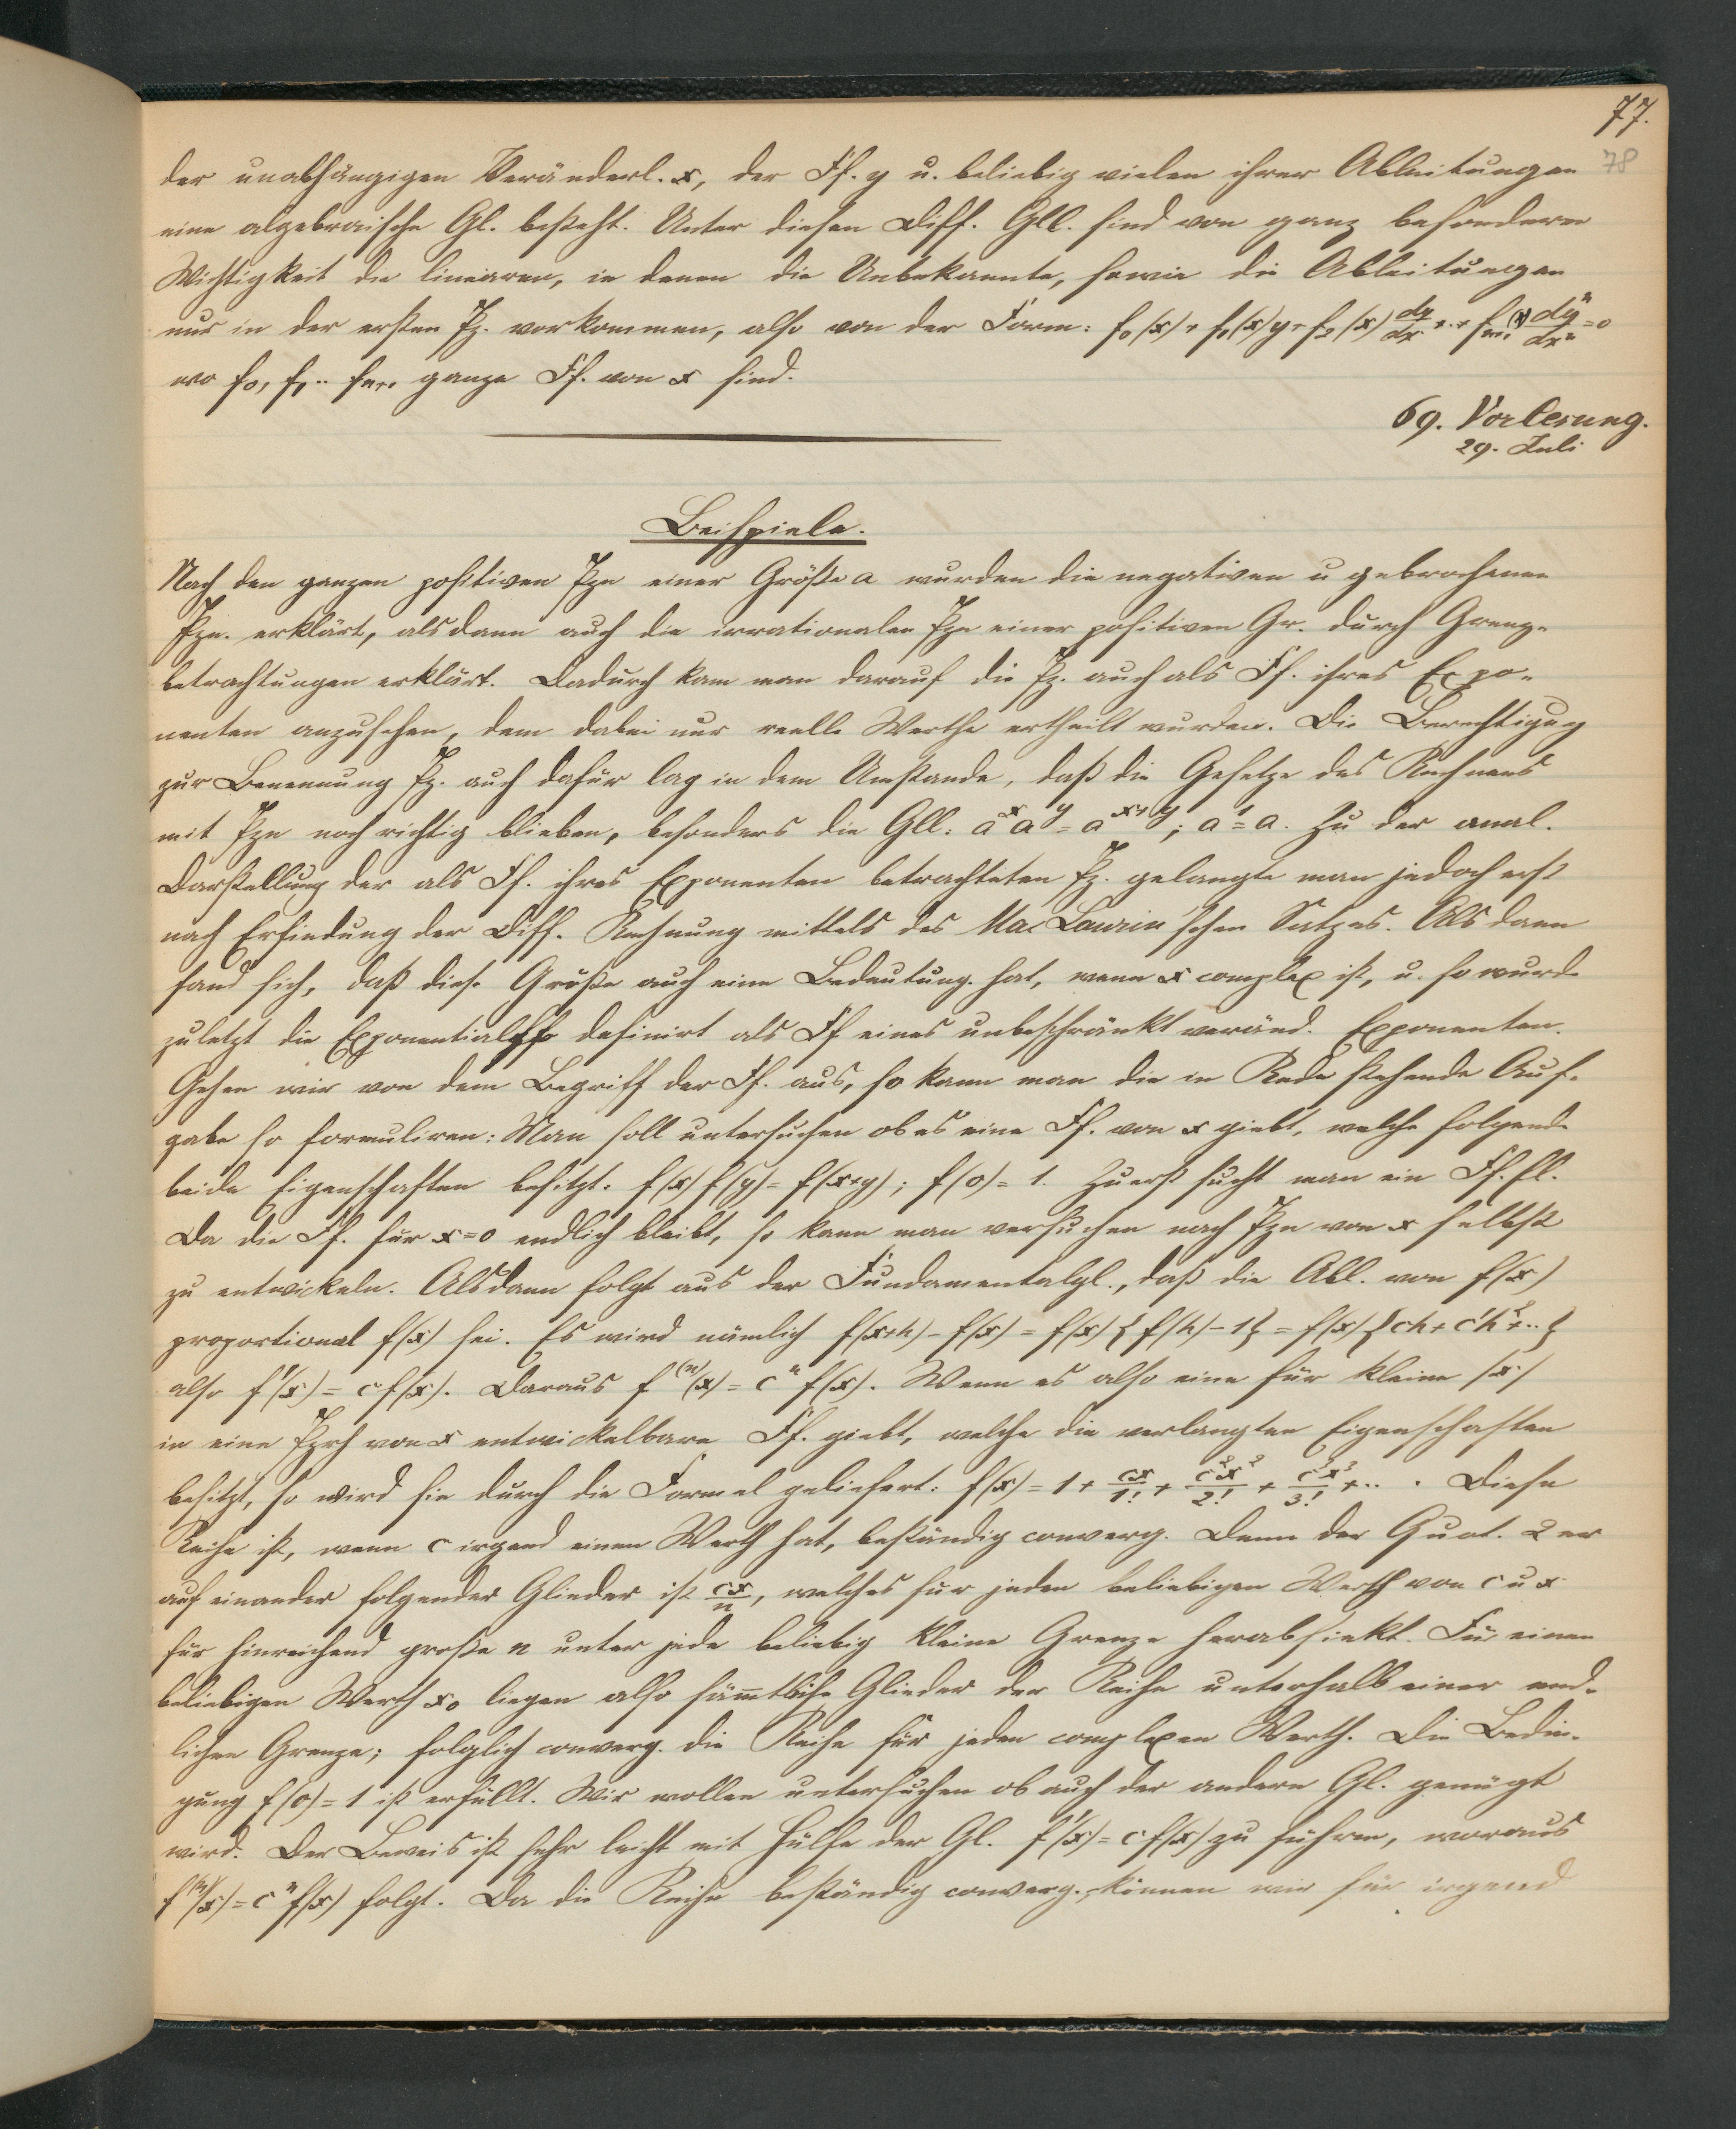 77.
78
der unabhängigen Veränderl. x, der Ff. y u. beliebig vielen ihrer Ableitungen
eine algebraische Gl. besteht. Unter diesen Diff. Gll. sind von ganz besonderer
Wichtigkeit die linearen, in denen die Unbekannte, sowie die Ableitungen
nur in der ersten Pz. vorkommen, also von der Form: f₀(x) + f₁(x)y + f₂(x) dy/dx + .. + fₙ₊₁(x) dⁿy/dxⁿ = 0
wo f₀, f₁ .. fₙ₊₁ ganze Ff. von x sind.
69. Vorlesung.
29. Juli
Beispiele.
Nach den ganzen positiven Pzn einer Größe a wurden die negativen u gebrochenen
Pzn. erklärt, alsdann auch die irrationalen Pzn einer positiven Gr. durch Grenz-
betrachtungen erklärt. Dadurch kam man darauf die Pz. auch als Ff. ihres Expo-
nenten anzusehen, dem dabei nur reelle Werthe ertheilt wurden. Die Berechtigug
zur Benennung Pz. auch dafür lag in dem Umstande, daß die Gesetze des Rechnens
mit Pzn noch richtig blieben, besonders die Gll: aˣaʸ = aˣ⁺ʸ; a¹ = a. Zu der anal.
Darstellung der als Ff. ihres Exponenten betrachteten Pz. gelangte man jedoch erst
nach Erfindung der Diff. Rechnung mittels des Mac Laurin'schen Satzes. Als dann
fand sich, daß diese Größe auch eine Bedeutung hat, wenn x complex ist, u. so wurde
zuletzt die Exponentialff definirt als Ff eines unbeschränkt veränd. Exponenten.
Gehen wir von dem Begriff der Ff. aus, so kann man die in Rede stehende Auf-
gabe so formuliren: Man soll untersuchen ob es eine Ff. von x giebt, welche folgende
beide Eigenschaften besitzt: f(x) f(y) = f(x+y); f(0) = 1. Zuerst sucht man ein Ff. El.
Da die Ff. für x=0 endlich bleibt, so kann man versuchen nach Pzn von x selbst
zu entwickeln. Alsdann folgt aus der Fundamentalgl., daß die Abl. von f(x)
proportional f(x) sei. Es wird nämlich f(x+h) - f(x) = f(x){f(h) - 1} = f(x){ch + c'h² + ..}
also f'(x) = c f(x). Daraus f⁽ⁿ⁾(x) = cⁿ f(x). Wenn es also eine für kleine |x|
in eine Pzrh von x entwickelbare Ff. giebt, welche die verlangten Eigenschaften
besitzt, so wird sie durch die Formel geliefert: f(x) = 1 + cx/1! + c²x²/2! + c³x³/3! + .. . Diese
Reihe ist, wenn c irgend einen Werth hat, beständig converg. Denn der Quot. 2er
auf einander folgender Glieder ist cx/n, welches für jeden beliebigen Werth von c u x
für hinreichend große n unter jede beliebig kleine Grenze herabsinkt. Für einen
beliebigen Werth x₀ liegen also sämmtliche Glieder der Reihe unterhalb einer end-
lichen Grenze; folglich converg. die Reihe für jeden complexen Werth. Die Bedin-
gung f(0) = 1 ist erfüllt. Wir wollen untersuchen ob auch der andern Gl. genügt
wird. Der Beweis ist sehr leicht mit Hülfe der Gl. f'(x) = c f(x) zu führen, woraus
f⁽ⁿ⁾(x) = cⁿ f(x) folgt. Da die Reihe beständig converg., können wir für irgend